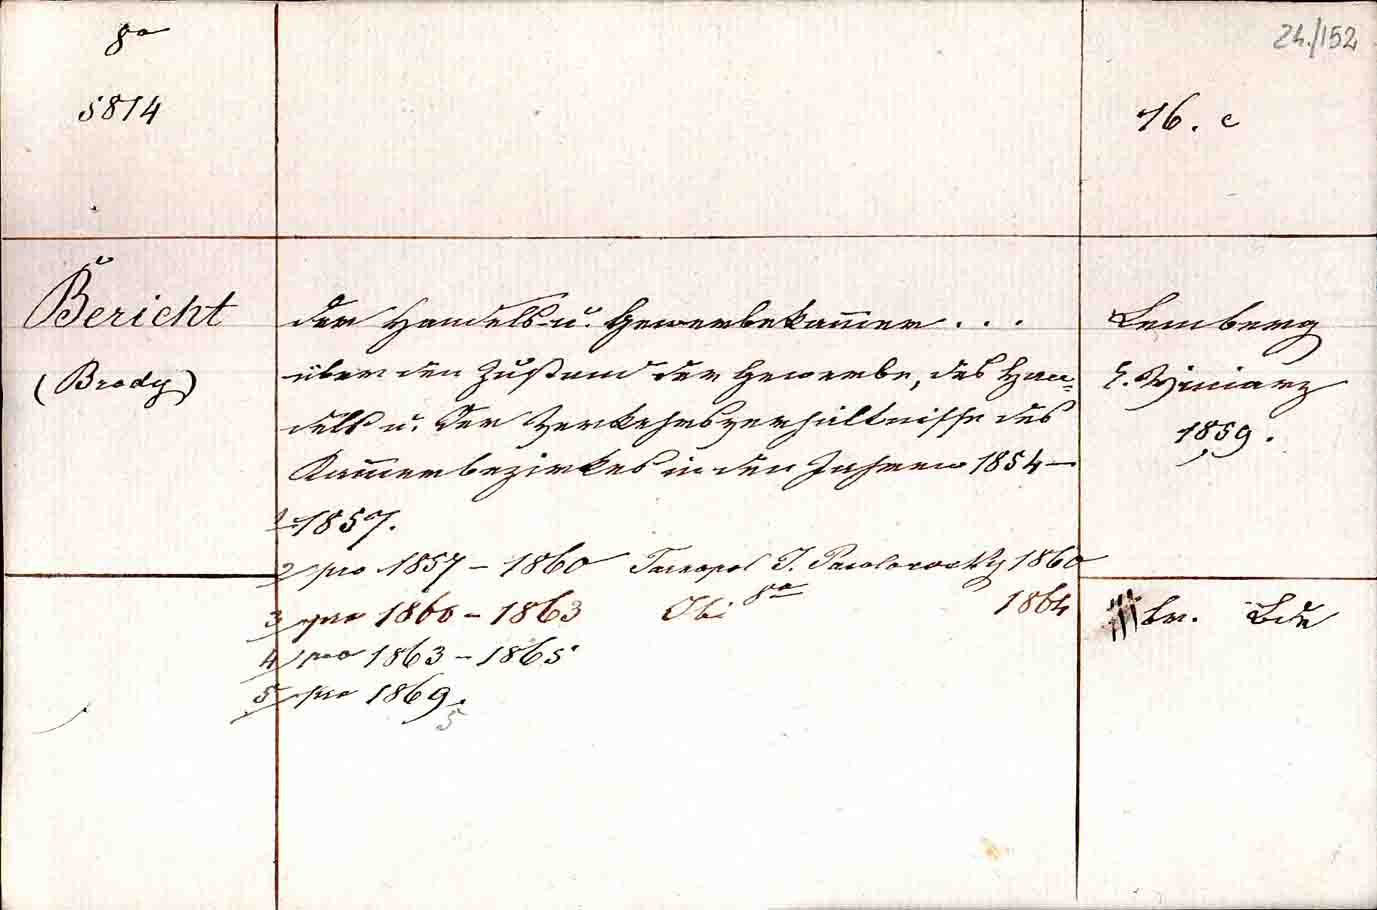 8º
5814
24./152
16. c
Bericht
(Brody)
der Handels- u. Gewerbekam̅er . . .
über den Zustand der Gewerbe, des Han=
dels u. der Verkehrsverhältnisse des
Kam̅erbezirkes in den Jahren 1854 –
1857.
Lemberg
E. Winiarz
1859.
2/ pro 1857 – 1860 Tarnopol J. Pawlowski 1860
3/ pro 1860 – 1863 8º 1864
4/ pro 1863 – 1865
5/ pro 1869.
5
br. Bde